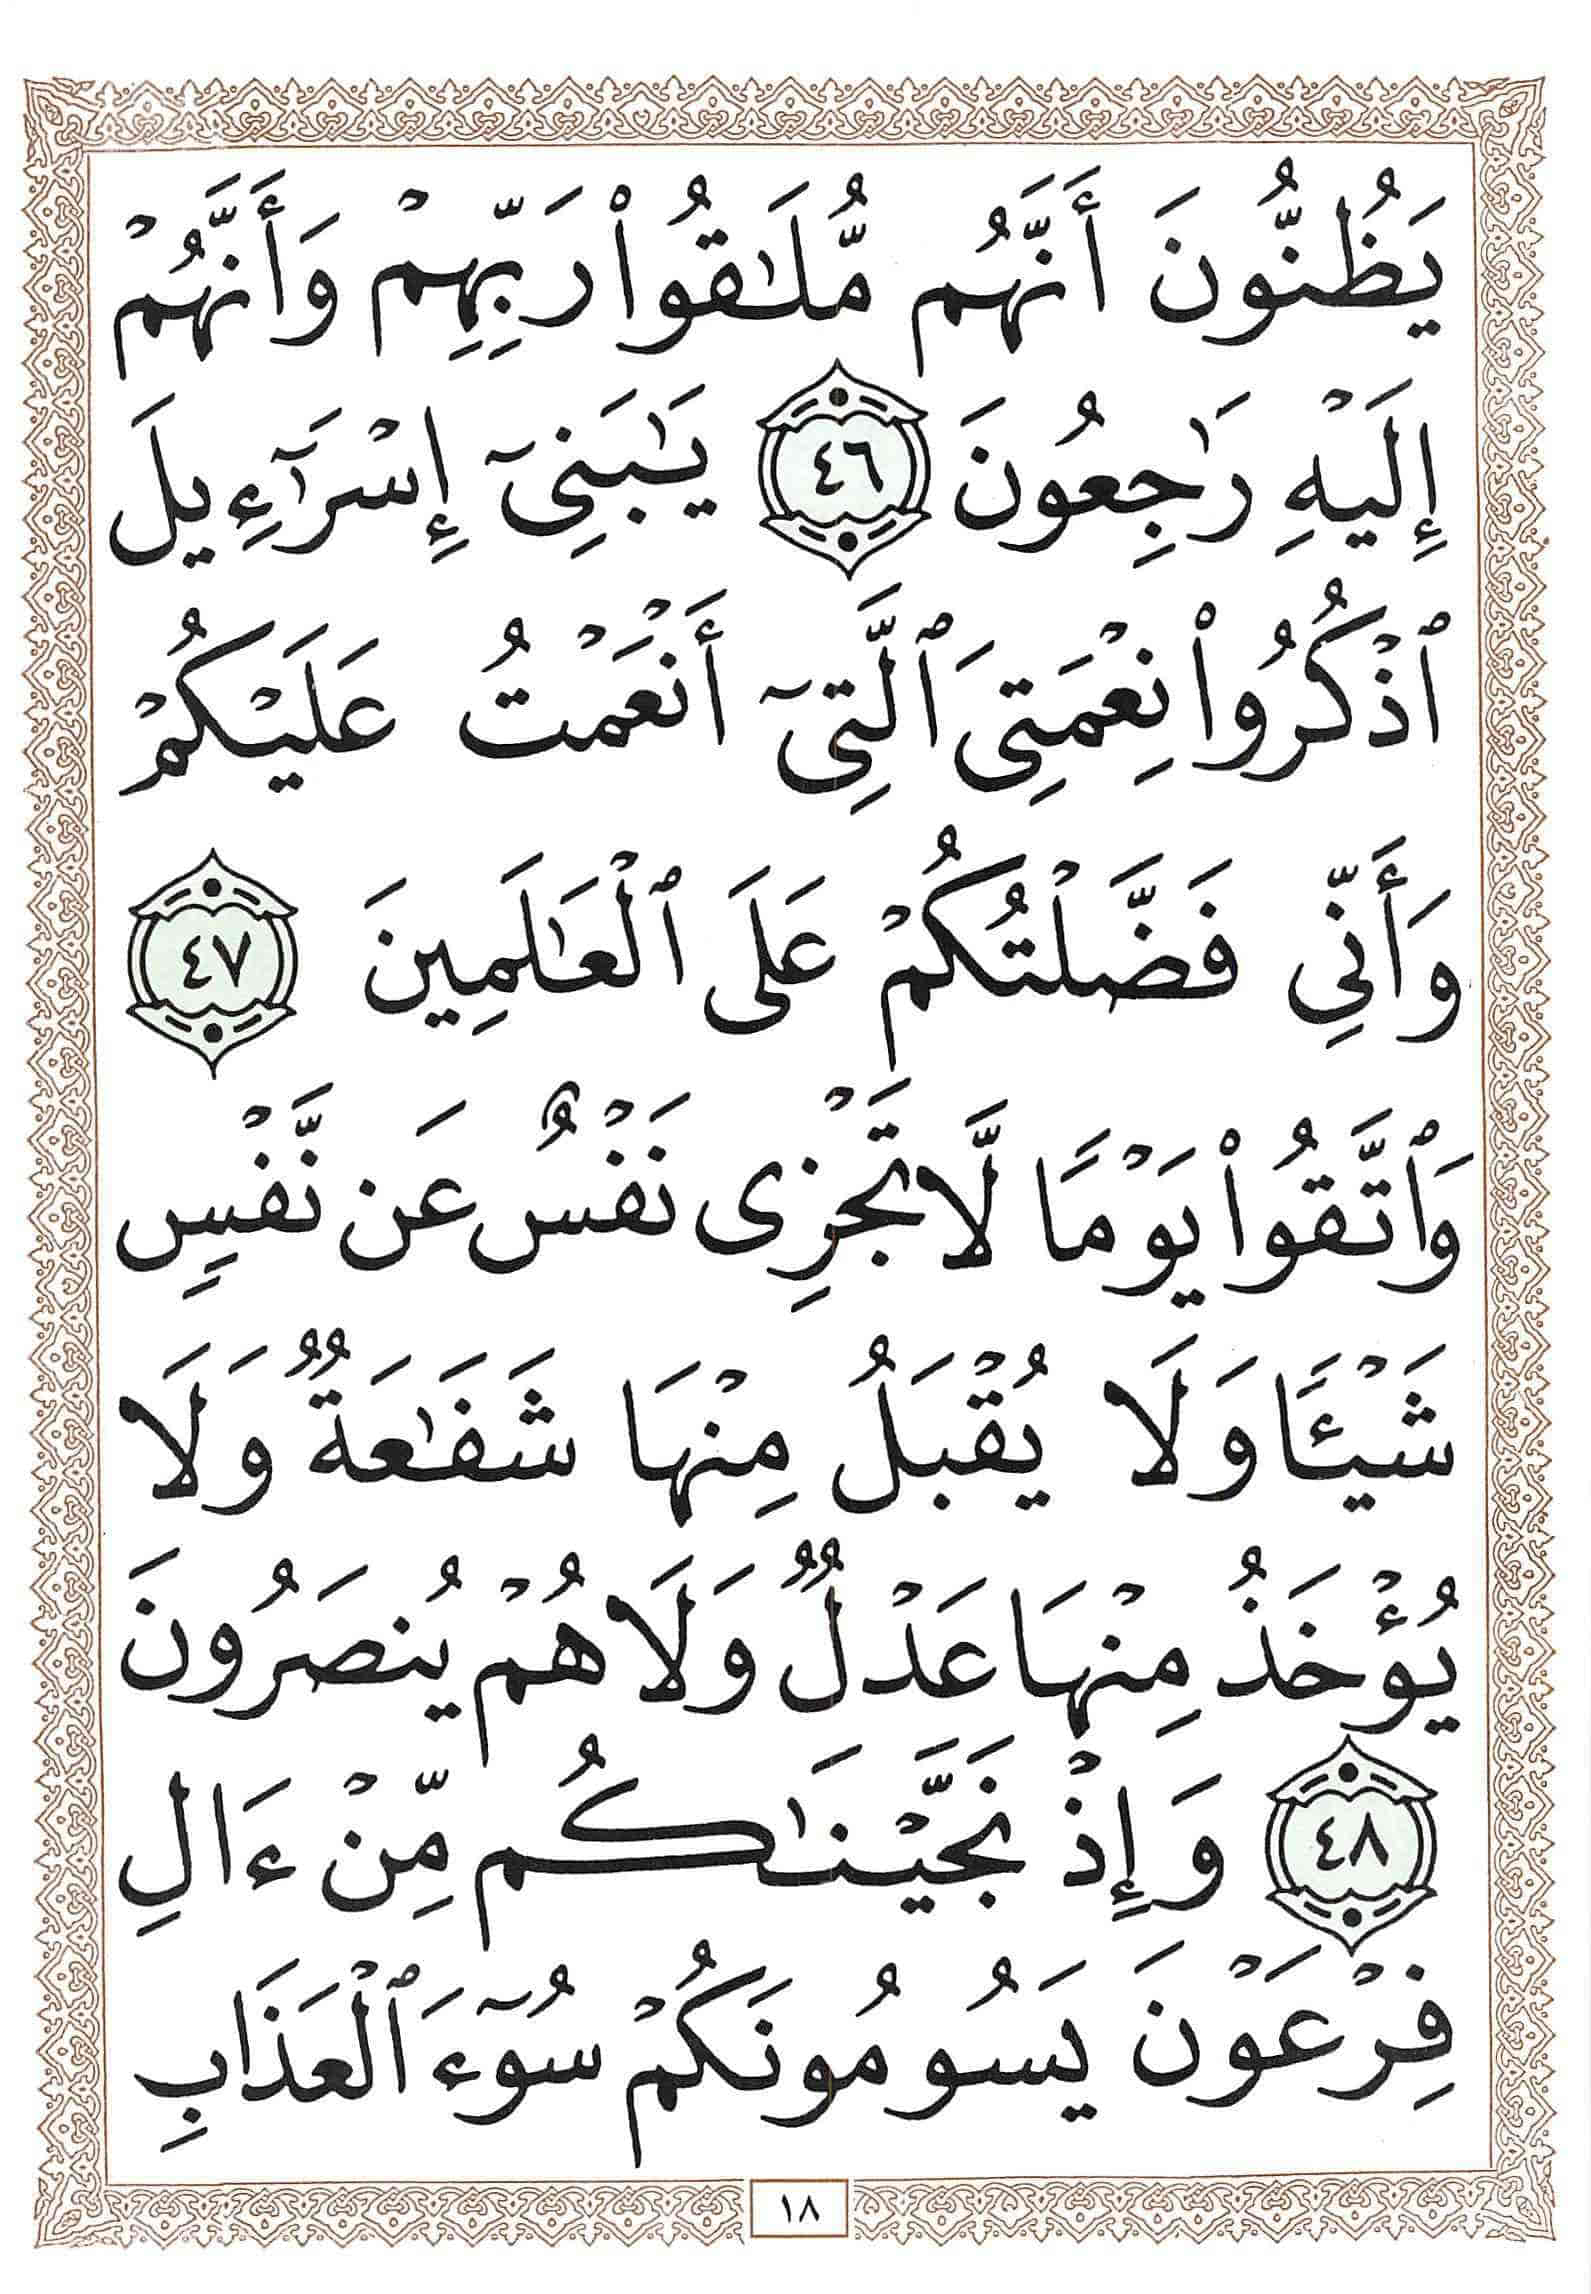 يَظُنُّونَ أَنَّهُم مُّلَٰقُوا۟ رَبِّهِمْ وَأَنَّهُمْ
إِلَيْهِ رَٰجِعُونَ ٤٦ يَٰبَنِىٓ إِسْرَٰٓءِيلَ
ٱذْكُرُوا۟ نِعْمَتِىَ ٱلَّتِىٓ أَنْعَمْتُ عَلَيْكُمْ
وَأَنِّى فَضَّلْتُكُمْ عَلَى ٱلْعَٰلَمِينَ ٤٧
وَٱتَّقُوا۟ يَوْمًا لَّا تَجْزِى نَفْسٌ عَن نَّفْسٍ
شَيْـًٔا وَلَا يُقْبَلُ مِنْهَا شَفَٰعَةٌ وَلَا
يُؤْخَذُ مِنْهَا عَدْلٌ وَلَا هُمْ يُنصَرُونَ
٤٨ وَإِذْ نَجَّيْنَٰكُم مِّنْ ءَالِ
فِرْعَوْنَ يَسُومُونَكُمْ سُوٓءَ ٱلْعَذَابِ
١٨